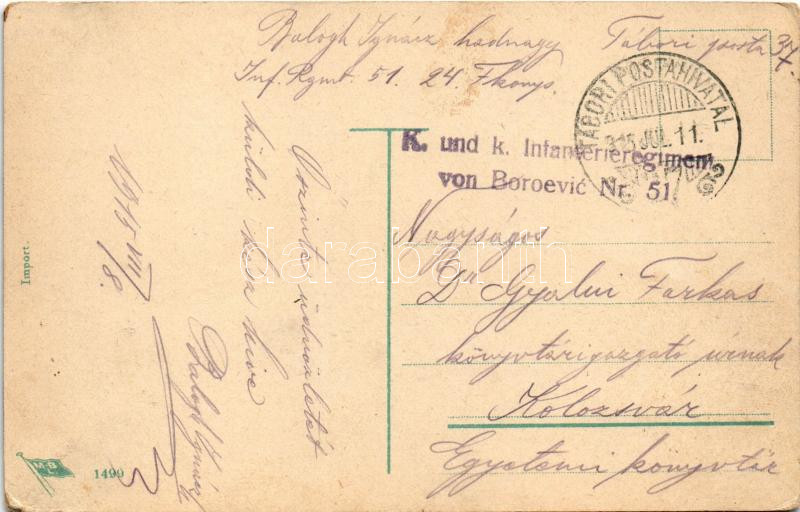 Balogh Ignácz hadnagy Tábori posta 37.
Inf. Rgmt. 51. 24. Fkomp.
TÁBORI POSTAHIVATAL
915 JUL. 11.
K. und k. Infanterieregiment
von Boroević Nr. 51.
Nagyságos
Dr Gyalui Farkas
könyvtárigazgató úrnak
Kolozsvár
Egyetemi könyvtár
Őszinte üdvözletét
küldi kész híve
Balogh Ignácz
1915 VII/8.
Import.
M.B.L
1499
darabanth